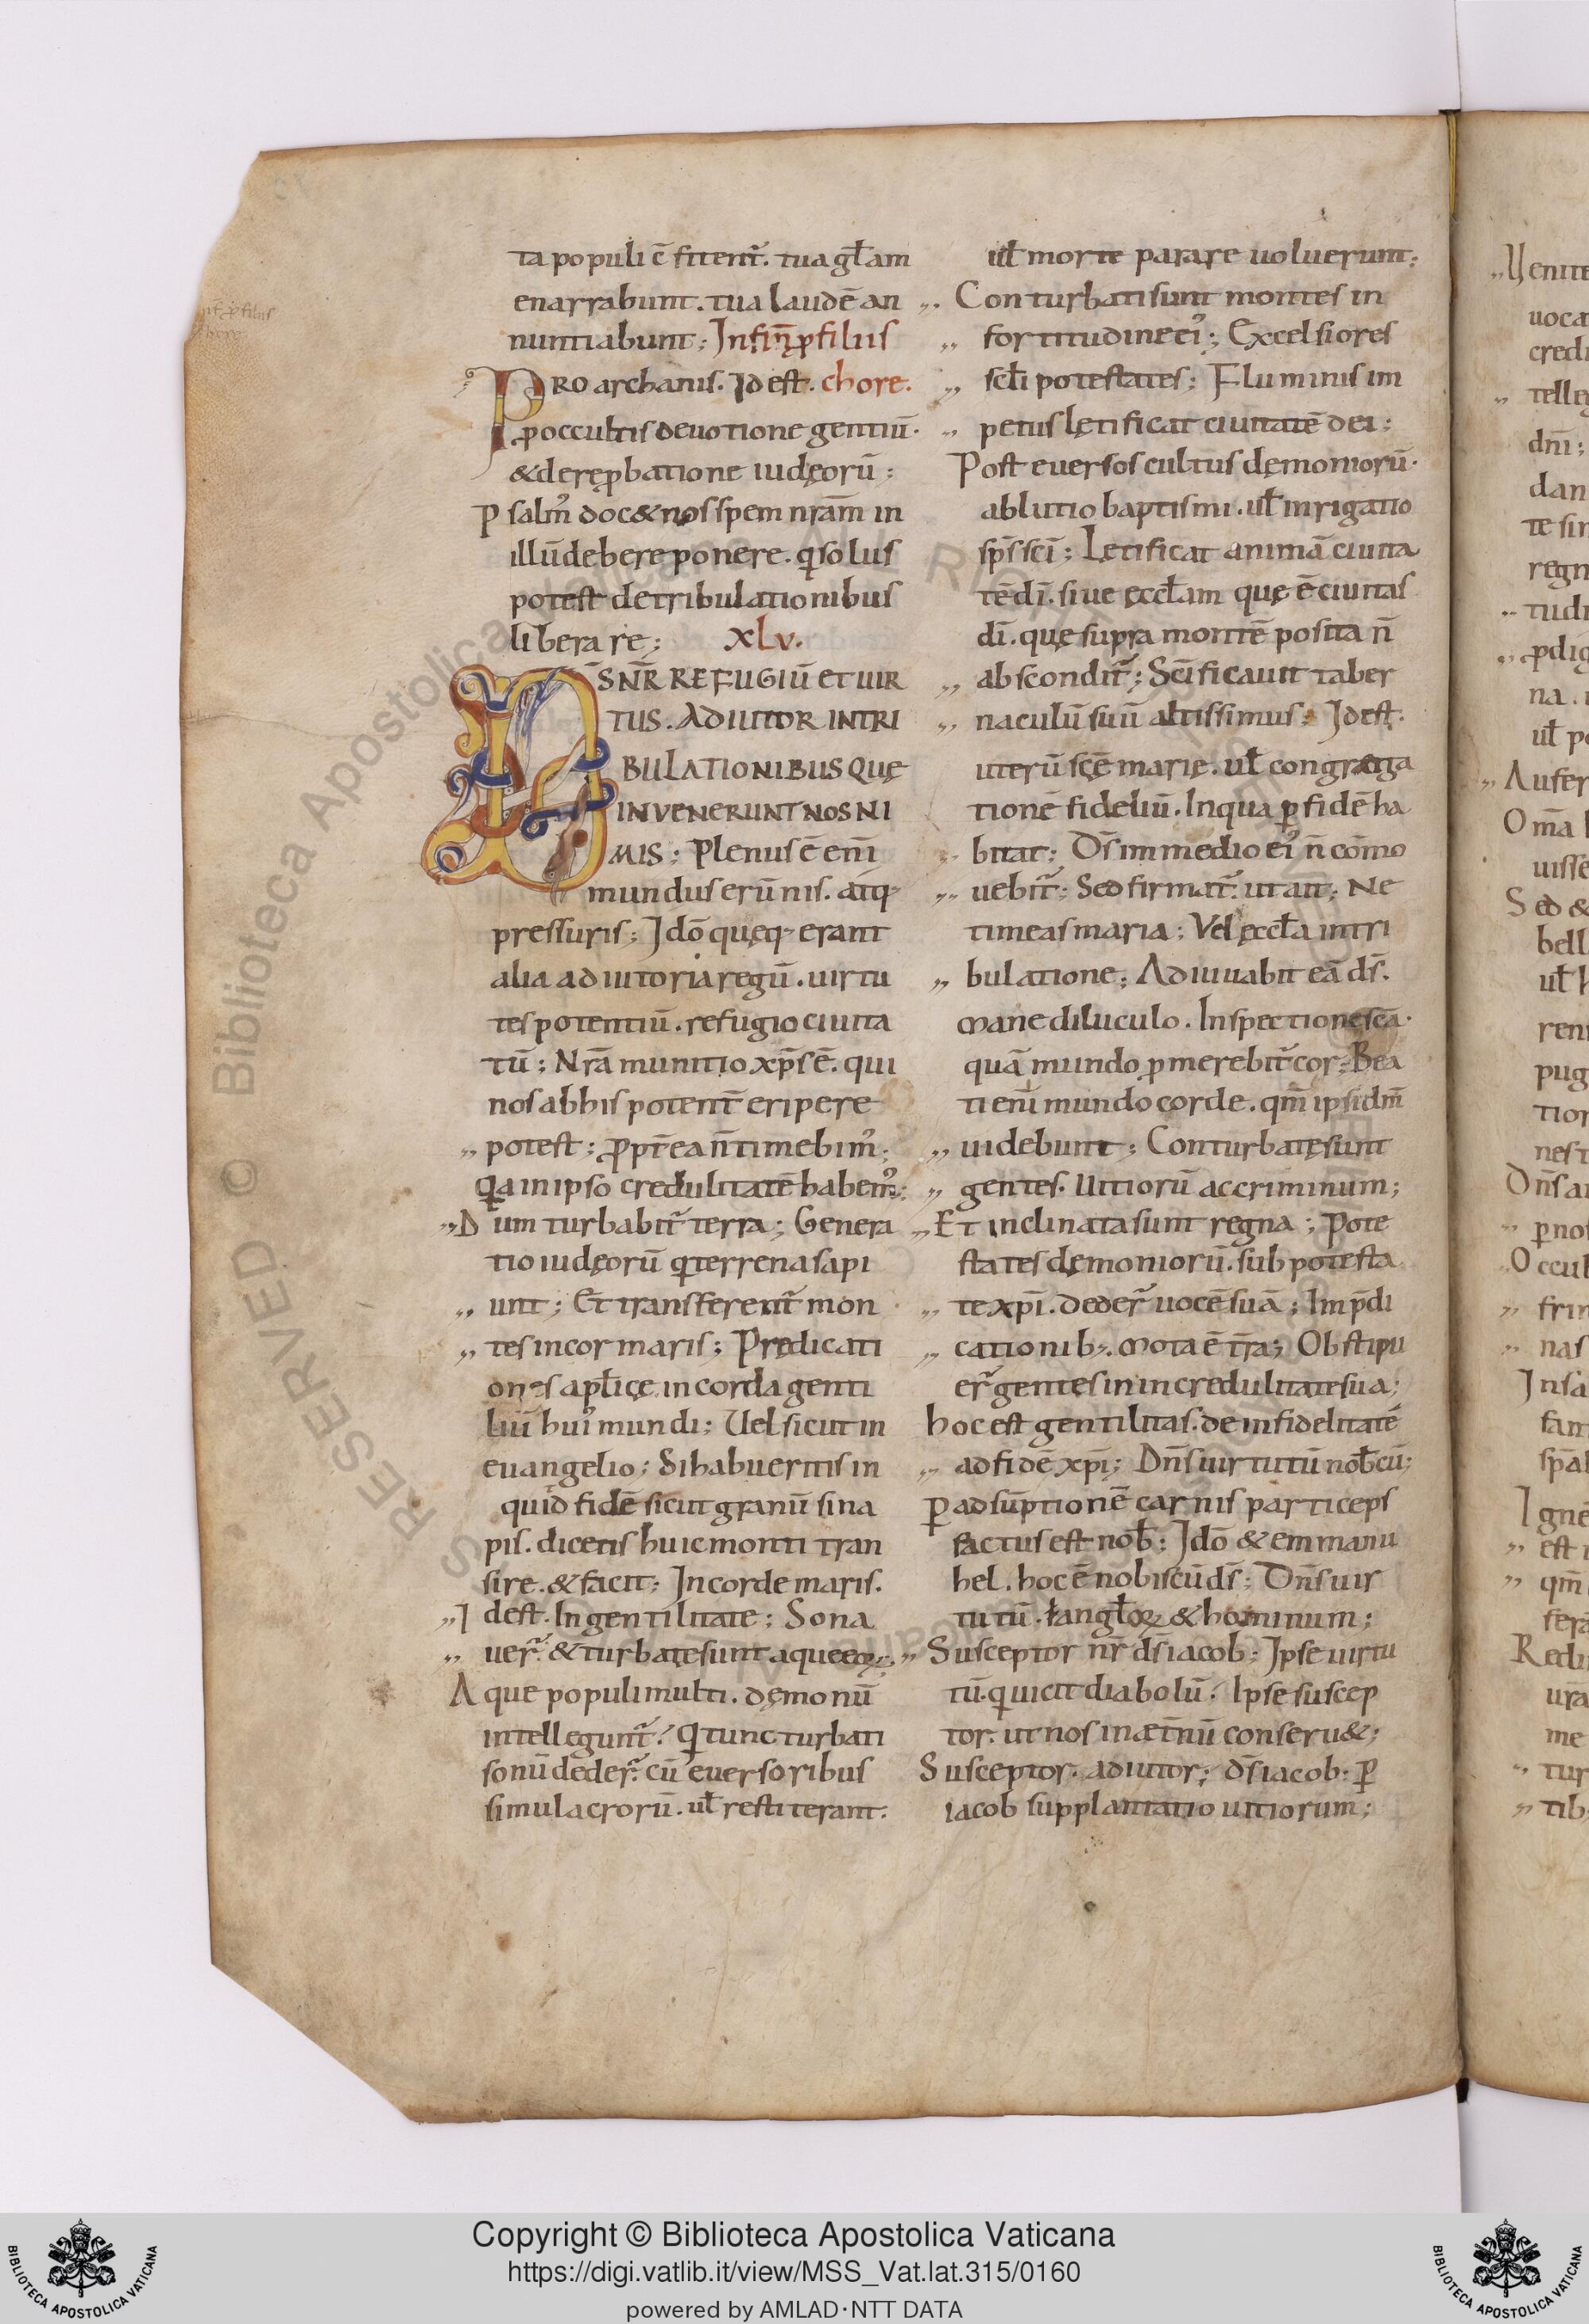 ta populi c̄ fitent᷑. tua gl̄am
enarrabunt. tua laudē an
nuntiabunt; In fin̄ ꝓ filiis
PRO archanis. Id est. chore.
ꝓ occultis deuotione gentiū.
& de reꝓbatione iudęorū;
Psalm᷒ doc& nos spem nrām in
illū debere ponere. q̇ solus
potest de tribulationibus
liberare; XLV.
D̄S NR̄ REFUGIŪ ET UIR
TUS. ADIUTOR IN TRI
BULATIONIBUS QUĘ
INVENERUNT NOS NI
MIS; Plenus ē enī
mundus erūnis. atq;
pressuris; Idō quęq; erant
alia adiutoria regū. uirtu
tes potentiū. refugio ciuita
tū; Nrā munitio xp̄s ē. qui
nos ab his potent̄ eripere
„ potest; ꝓpt̄ea n̄ timebim᷒;
Q̇a in ipso credulitatē habem᷒;
„ Dum turbabit᷑ terra; Genera
tio iudęorū q̇ terrena sapi
„ unt; Et transferent᷑ mon
„ tes in cor maris; Prędicati
ones apl̄icę in corda genti
liū hui᷒ mundi; Uel sicut in
euangelio; Si habueritis in
quid fidē sicut granū sina
pis. dicetis huic monti tran
sire. & facit; In corde maris.
„ Idest. In gentilitate; Sona
„ uer᷑. & turbatę sunt aquę eoꝝ;
Aque populi multi. dęmonū
intellegunt᷑. Q̇ tunc turbati
sonū deder᷑. cū euersoribus
simulacrorū. ul̄ restiterant.
ul̄ morte parare uoluerunt;
„ Conturbati sunt montes in
„ fortitudine ei᷒; Excelsiores
„ scl̄i potestates; Fluminis im
„ petus lętificat ciuitatē dei;
Post euersos cultus dęmoniorū.
ablutio baptismi. ul̄ inrigatio
sp̄s scī; Lętificat animā ciuita
tē dī. siue ęccl̄am quę ē ciuitas
dī. quę supra montē posita n̄
„ abscondit᷑; Scīficauit taber
„ naculū suū altissimus; Idest.
uterū scē̄ marię. ul̄ congrega
tionē fideliū. In qua p̲ fidē ha
„ bitat; D̄s in medio ei᷒ n̄ cōmo
„ uebit᷑; Sed firmat᷑. ut ait; Ne
timeas maria; Vel ęccl̄a in tri
„ bulatione; Adiuuabit eā d̄s.
mane diluculo. Inspectione scā.
quā mundo ꝓmerebit᷑ cor; Bea
ti enī mundo corde. qm̄ ipsi dm̄
„ uidebunt; Conturbatę sunt
„ gentes. Uitiorū ac criminum;
„ Et inclinata sunt regna; Pote
states dęmoniorū. sub potesta
„ te xp̄ī. deder᷑ uocē suā; In p̄di
„ cationib;. mota ē t̄ra; Obstipu
er᷑ gentes in incredulitate sua;
hoc est gentilitas. de infidelitatē
„ ad fidē xp̄ī; Dn̄s uirtutū nob̄cū;
ꝑ adsūptionē carnis particeps
factus est nob̄; Idō & emmanu
hel. hoc ē nobiscū d̄s; Dn̄s uir
tutū. ł angl̄oꝝ & hominum;
„ Susceptor nr̄ d̄s iacob; Ipse uirtu
tū. q̇ uicit diabolū. Ipse suscep
tor. ut nos in æt̄nū conseru&;
Susceptor. adiutor; d̄s iacob: ꝑ
iacob supplantatio uitiorum;
Copyright © Biblioteca Apostolica Vaticana
https://digi.vatlib.it/view/MSS_Vat.lat.315/0160
powered by AMLAD·NTT DATA